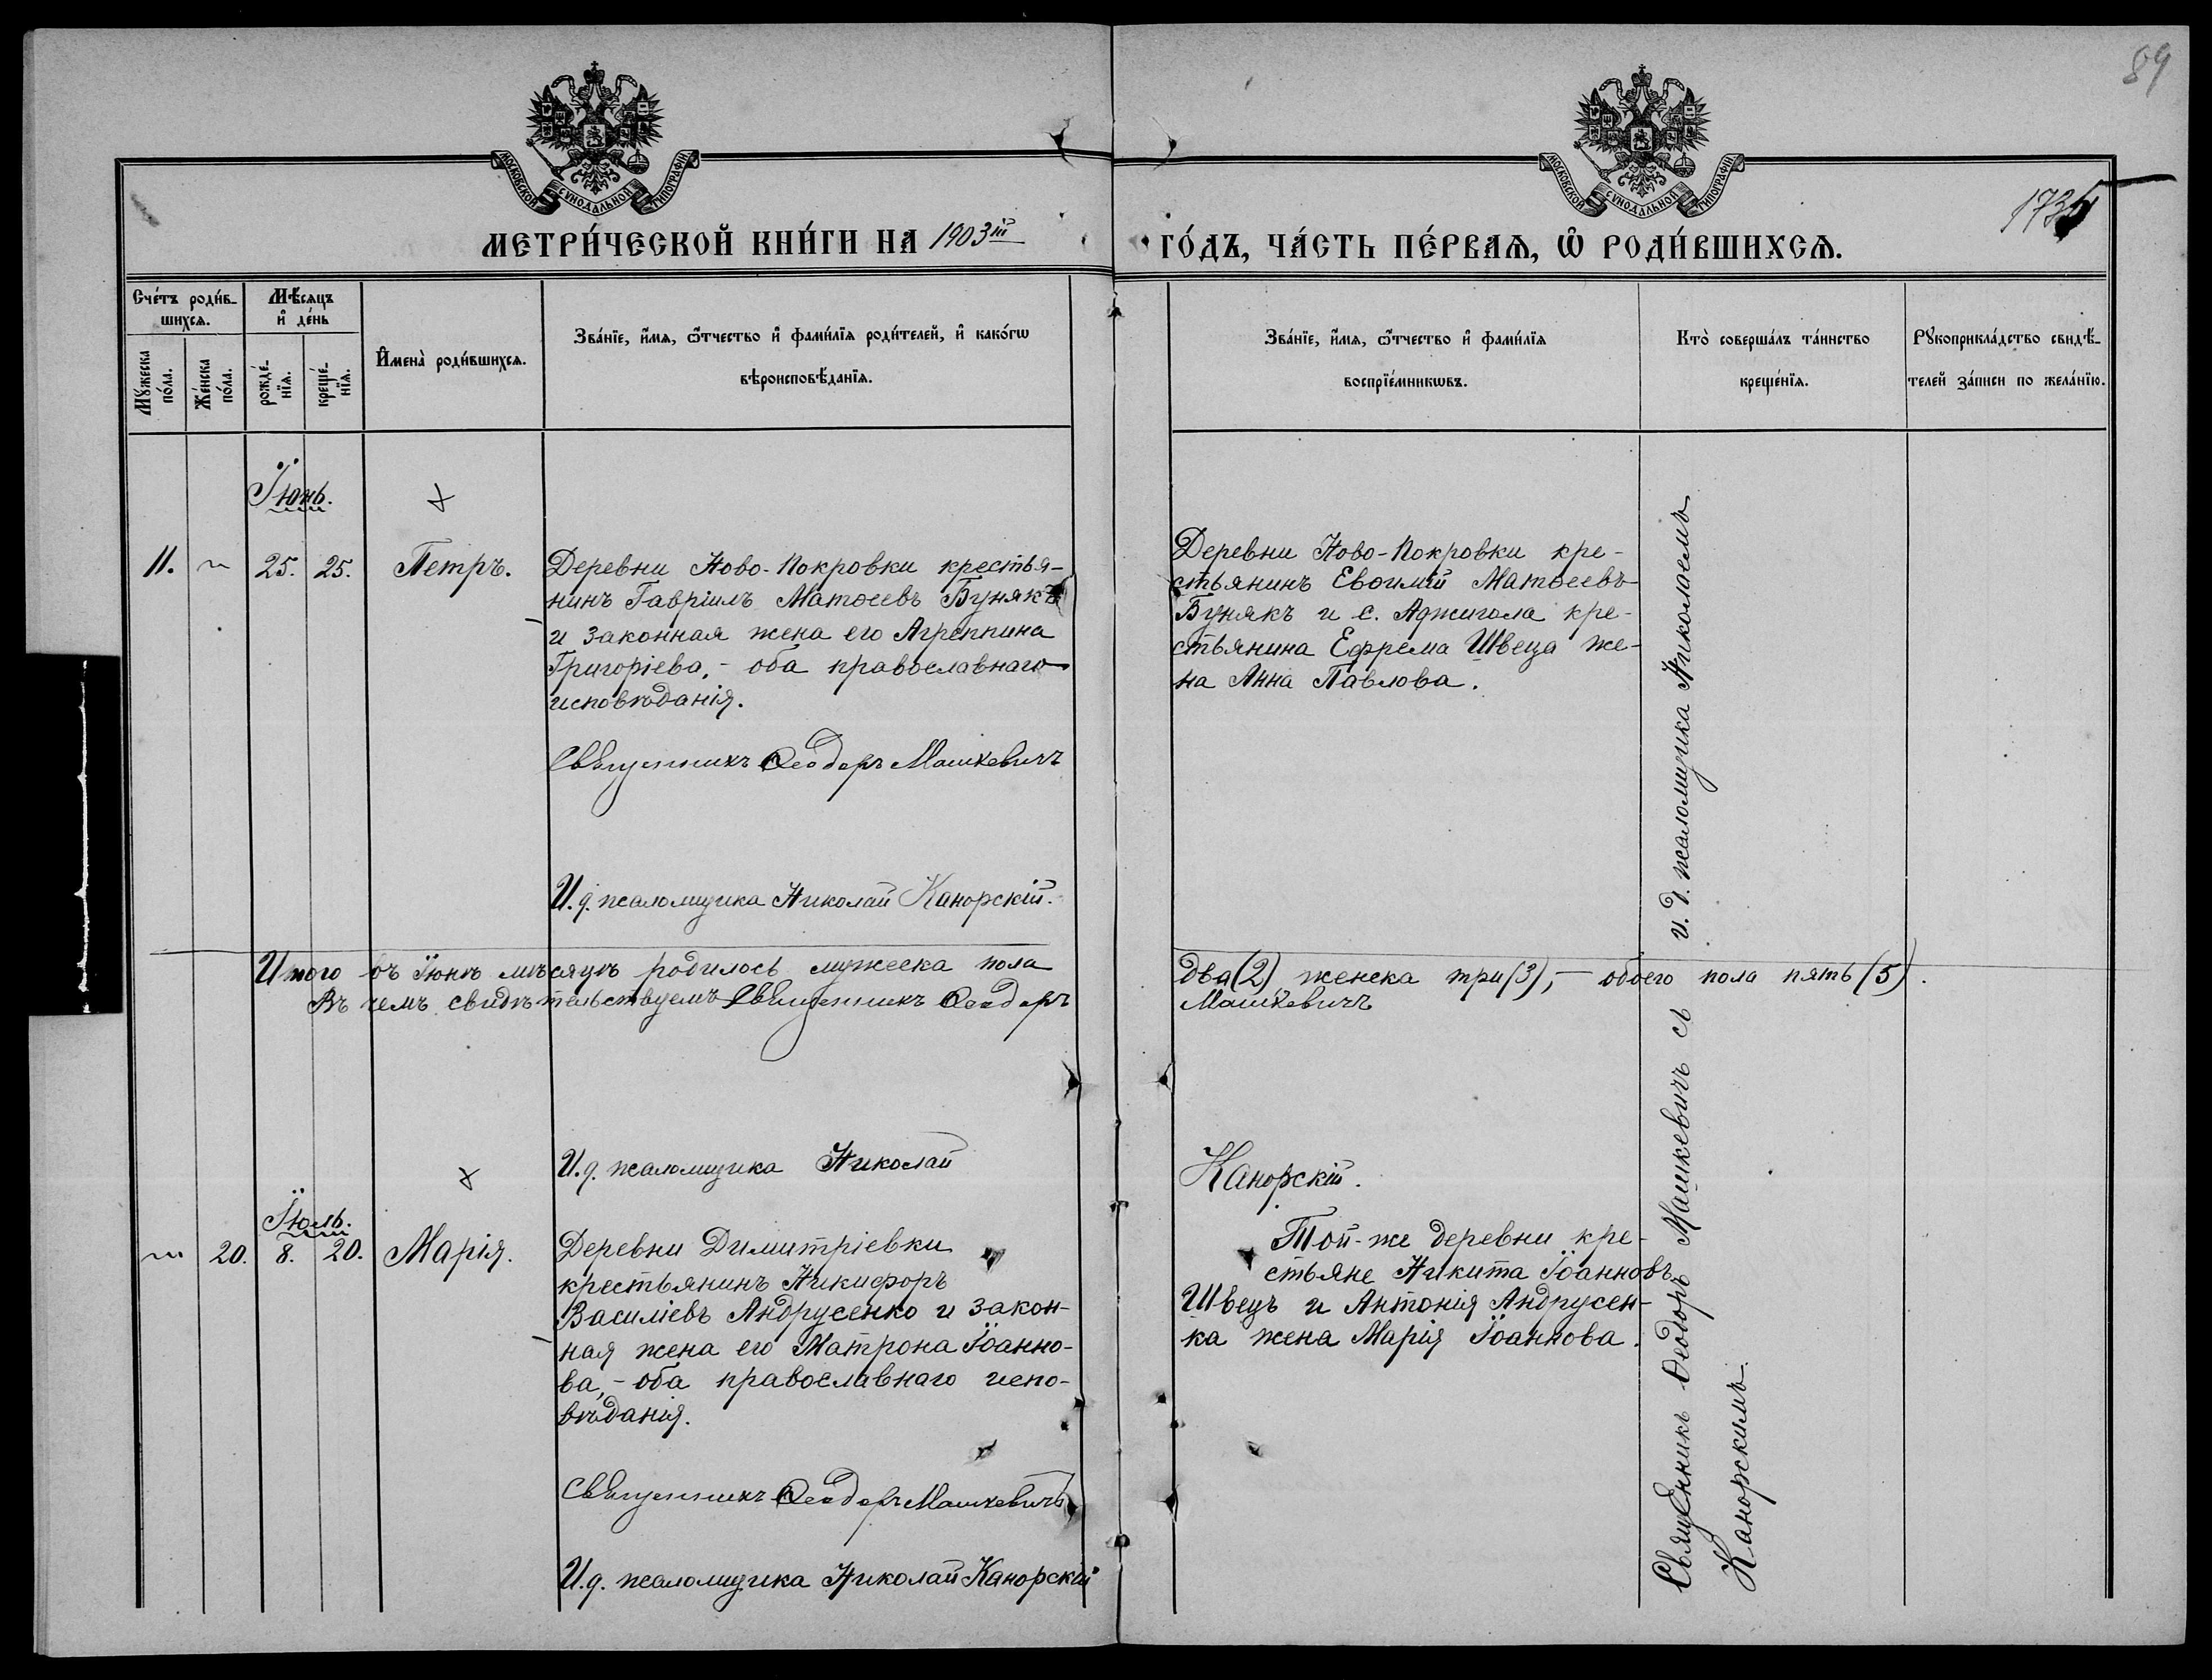 89
1735
МОСКОВСКОЙ СѴНОДАЛЬНОЙ ТИПОГРАФІИ
МОСКОВСКОЙ СѴНОДАЛЬНОЙ ТИПОГРАФІИ
МЕТРИ́ЧЕСКОЙ КНИ́ГИ НА 1903ій ГО́ДЪ, ЧА́СТЬ ПЕ́РВАѦ, Ѡ҆ РОДИ́ВШИХСѦ.
Сче́тъ роди́в-
шихсѧ.
Мꙋ́жеска по́ла.
Же́нска по́ла.
Мѣ́сѧцъ
и҆ де́нь
рожде́-
нїѧ.
креще́-
нїѧ.
И҆мена̀ роди́вшихсѧ.
Зва́нїе, и҆́мѧ, ѻ҆́тчество и҆ фами́лїѧ роди́телей, и҆ како́гѡ
вѣроисповѣ́данїѧ.
Зва́нїе, и҆́мѧ, ѻ҆́тчество и҆ фами́лїѧ
воспрїе́мникѡвъ.
Кто̀ соверша́лъ та́инство
креще́нїѧ.
Рꙋкоприкла́дство свидѣ́-
телей за́писи по жела́нїю.
Іюнь.
11. 25. 25. Петръ.
Деревни Ново-Покровки крестья-
нинъ Гавріилъ Матѳеевъ Бунякъ
и законная жена его Агреппина
Григоріева, - оба православнаго
исповѣданія.
Священникъ Ѳеодоръ Машкевичъ
И.д. псаломщика Николай Канорскій.
Деревни Ново-Покровки кре-
стьянинъ Евѳимій Матѳеевъ
Бунякъ и с. Аджигола кре-
стьянина Ефрема Швеца же-
на Анна Павлова.
Итого въ Іюнѣ мѣсяцѣ родилось мужеска пола два (2), женска три (3), — обоего пола пять (5).
Въ чемъ свидѣтельствуемъ Священникъ Ѳеодоръ Машкевичъ
И.д. псаломщика Николай Канорскій.
Іюль.
20. 8. 20. Марія.
Деревни Димитріевки
крестьянинъ Никифоръ
Василіевъ Андрусенко и закон-
ная жена его Матрона Іоанно-
ва, - оба православнаго испо-
вѣданія.
Священникъ Ѳеодоръ Машкевичъ
И.д. псаломщика Николай Канорскій
Той-же деревни кре-
стьяне Никита Іоанновъ
Швецъ и Антонія Андрусен-
ка жена Марія Іоаннова.
Священникъ Ѳеодоръ Машкевичъ съ и. д. псаломщика Николаемъ
Канорскимъ.